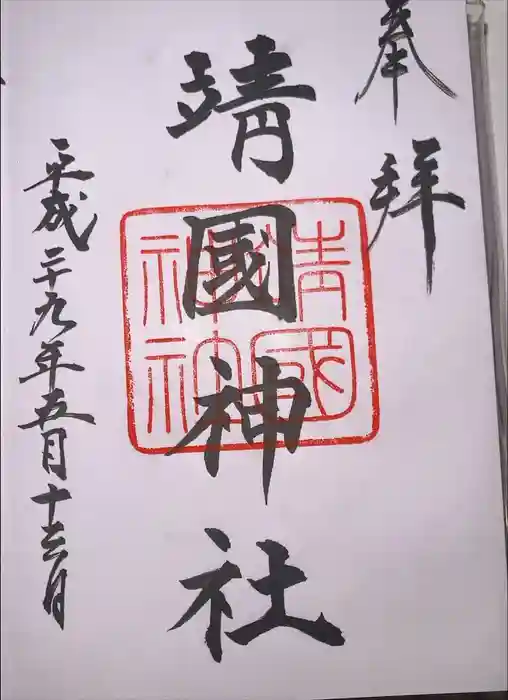 奉拝
靖國神社
靖國神社
平成二十九年五月十三日